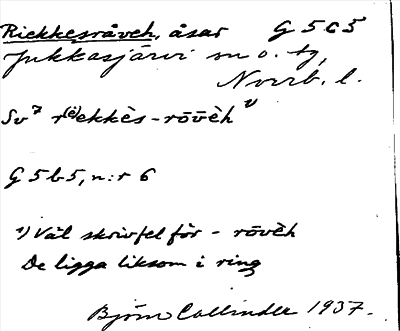 Riekkesråveh, åsar G 5 C 5
Jukkasjärvi sn o. tg,
Norrb. l.
Sv⁷ r(ė)ekkès-rōv̄èh ¹⁾
G 5 b 5, n:r 6
¹⁾ Väl skrivfel för - rōvèh
De ligga liksom i ring
Björn Collinder 1937.